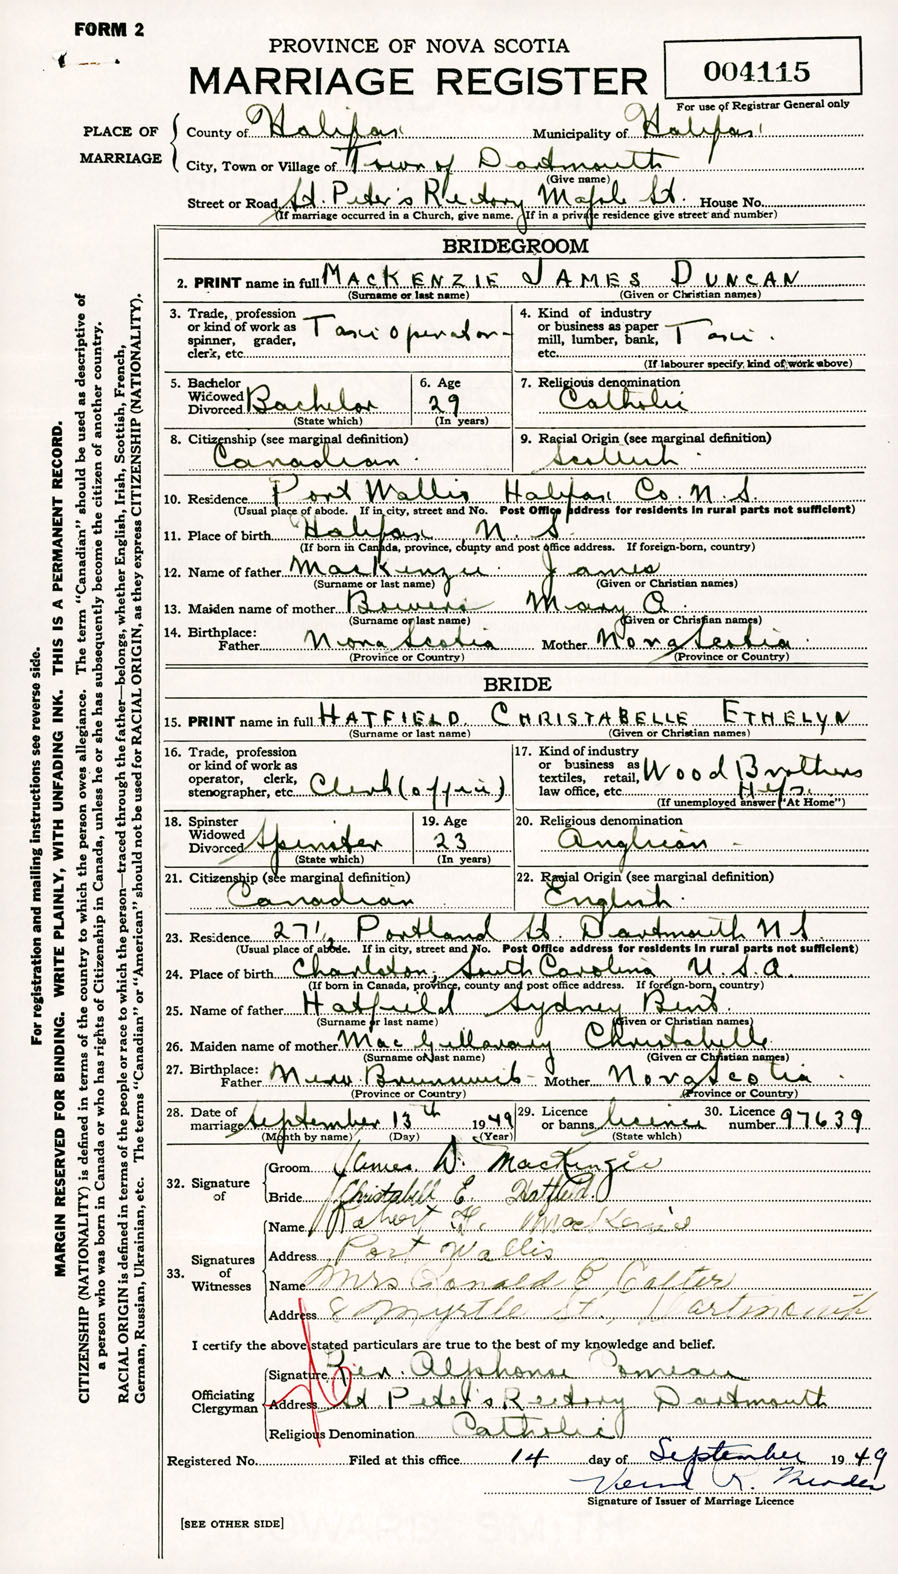 FORM 2
PROVINCE OF NOVA SCOTIA
MARRIAGE REGISTER
004115
For use of Registrar General only
PLACE OF MARRIAGE
County of Halifax Municipality of Halifax
City, Town or Village of Town of Dartmouth
(Give name)
Street or Road St. Peter's Rectory Maple St. House No.
(If marriage occurred in a Church, give name. If in a private residence give street and number)
BRIDEGROOM
2. PRINT name in full MACKENZIE JAMES DUNCAN
(Surname or last name) (Given or Christian names)
3. Trade, profession or kind of work as spinner, grader, clerk, etc. Taxi Operator
4. Kind of industry or business as paper mill, lumber, bank, etc. Taxi.
(If labourer specify kind of work above)
5. Bachelor Widowed Divorced Bachelor
(State which)
6. Age 29
(In years)
7. Religious denomination Catholic
8. Citizenship (see marginal definition) Canadian.
9. Racial Origin (see marginal definition) Scottish
10. Residence Port Wallis Halifax Co. N.S.
(Usual place of abode. If in city, street and No. Post Office address for residents in rural parts not sufficient)
11. Place of birth Halifax N.S.
(If born in Canada, province, county and post office address. If foreign-born, country)
12. Name of father MacKenzie James
(Surname or last name) (Given or Christian names)
13. Maiden name of mother Bowers Mary A.
(Surname or last name) (Given or Christian names)
14. Birthplace: Father Nova Scotia Mother Nova Scotia.
(Province or Country) (Province or Country)
BRIDE
15. PRINT name in full HATFIELD CHRISTABELLE ETHELYN
(Surname or last name) (Given or Christian names)
16. Trade, profession or kind of work as operator, clerk, stenographer, etc. Clerk (office)
17. Kind of industry or business as textiles, retail, law office, etc. Wood Brothers Hfx.
(If unemployed answer "At Home")
18. Spinster Widowed Divorced Spinster
(State which)
19. Age 23
(In years)
20. Religious denomination Anglican -
21. Citizenship (see marginal definition) Canadian
22. Racial Origin (see marginal definition) English.
23. Residence 27½ Portland St. Dartmouth N.S.
(Usual place of abode. If in city, street and No. Post Office address for residents in rural parts not sufficient)
24. Place of birth Charlston, South Carolina, U.S.A.
(If born in Canada, province, county and post office address. If foreign-born, country)
25. Name of father Hatfield Sydney Bent.
(Surname or last name) (Given or Christian names)
26. Maiden name of mother MacGillavary Christabelle
(Surname or last name) (Given or Christian names)
27. Birthplace: Father New Brunswick Mother Nova Scotia.
(Province or Country) (Province or Country)
28. Date of marriage September 13th 1949
(Month by name) (Day) (Year)
29. Licence or banns licence
(State which)
30. Licence number 97639
32. Signature of
Groom James D. MacKenzie
Bride Christabell E. Hatfield
33. Signatures of Witnesses
Name Robert H. MacKenzie
Address Port Wallis
Name Mrs Donald E
Address 8 Myrtle St., Dartmouth
I certify the above stated particulars are true to the best of my knowledge and belief.
Officiating Clergyman
Signature Rev. Alphonse Comeau
Address St Peter's Rectory Dartmouth
Religious Denomination Catholic
Registered No. Filed at this office 14 day of September 1949
Signature of Issuer of Marriage Licence
[SEE OTHER SIDE]
For registration and mailing instructions see reverse side.
MARGIN RESERVED FOR BINDING. WRITE PLAINLY, WITH UNFADING INK. THIS IS A PERMANENT RECORD.
CITIZENSHIP (NATIONALITY) is defined in terms of the country to which the person owes allegiance. The term "Canadian" should be used as descriptive of
a person who was born in Canada or who has rights of Citizenship in Canada, unless he or she has subsequently become the citizen of another country.
RACIAL ORIGIN is defined in terms of the people or race to which the person—traced through the father—belongs, whether English, Irish, Scottish, French,
German, Russian, Ukrainian, etc. The terms "Canadian" or "American" should not be used for RACIAL ORIGIN, as they express CITIZENSHIP (NATIONALITY).